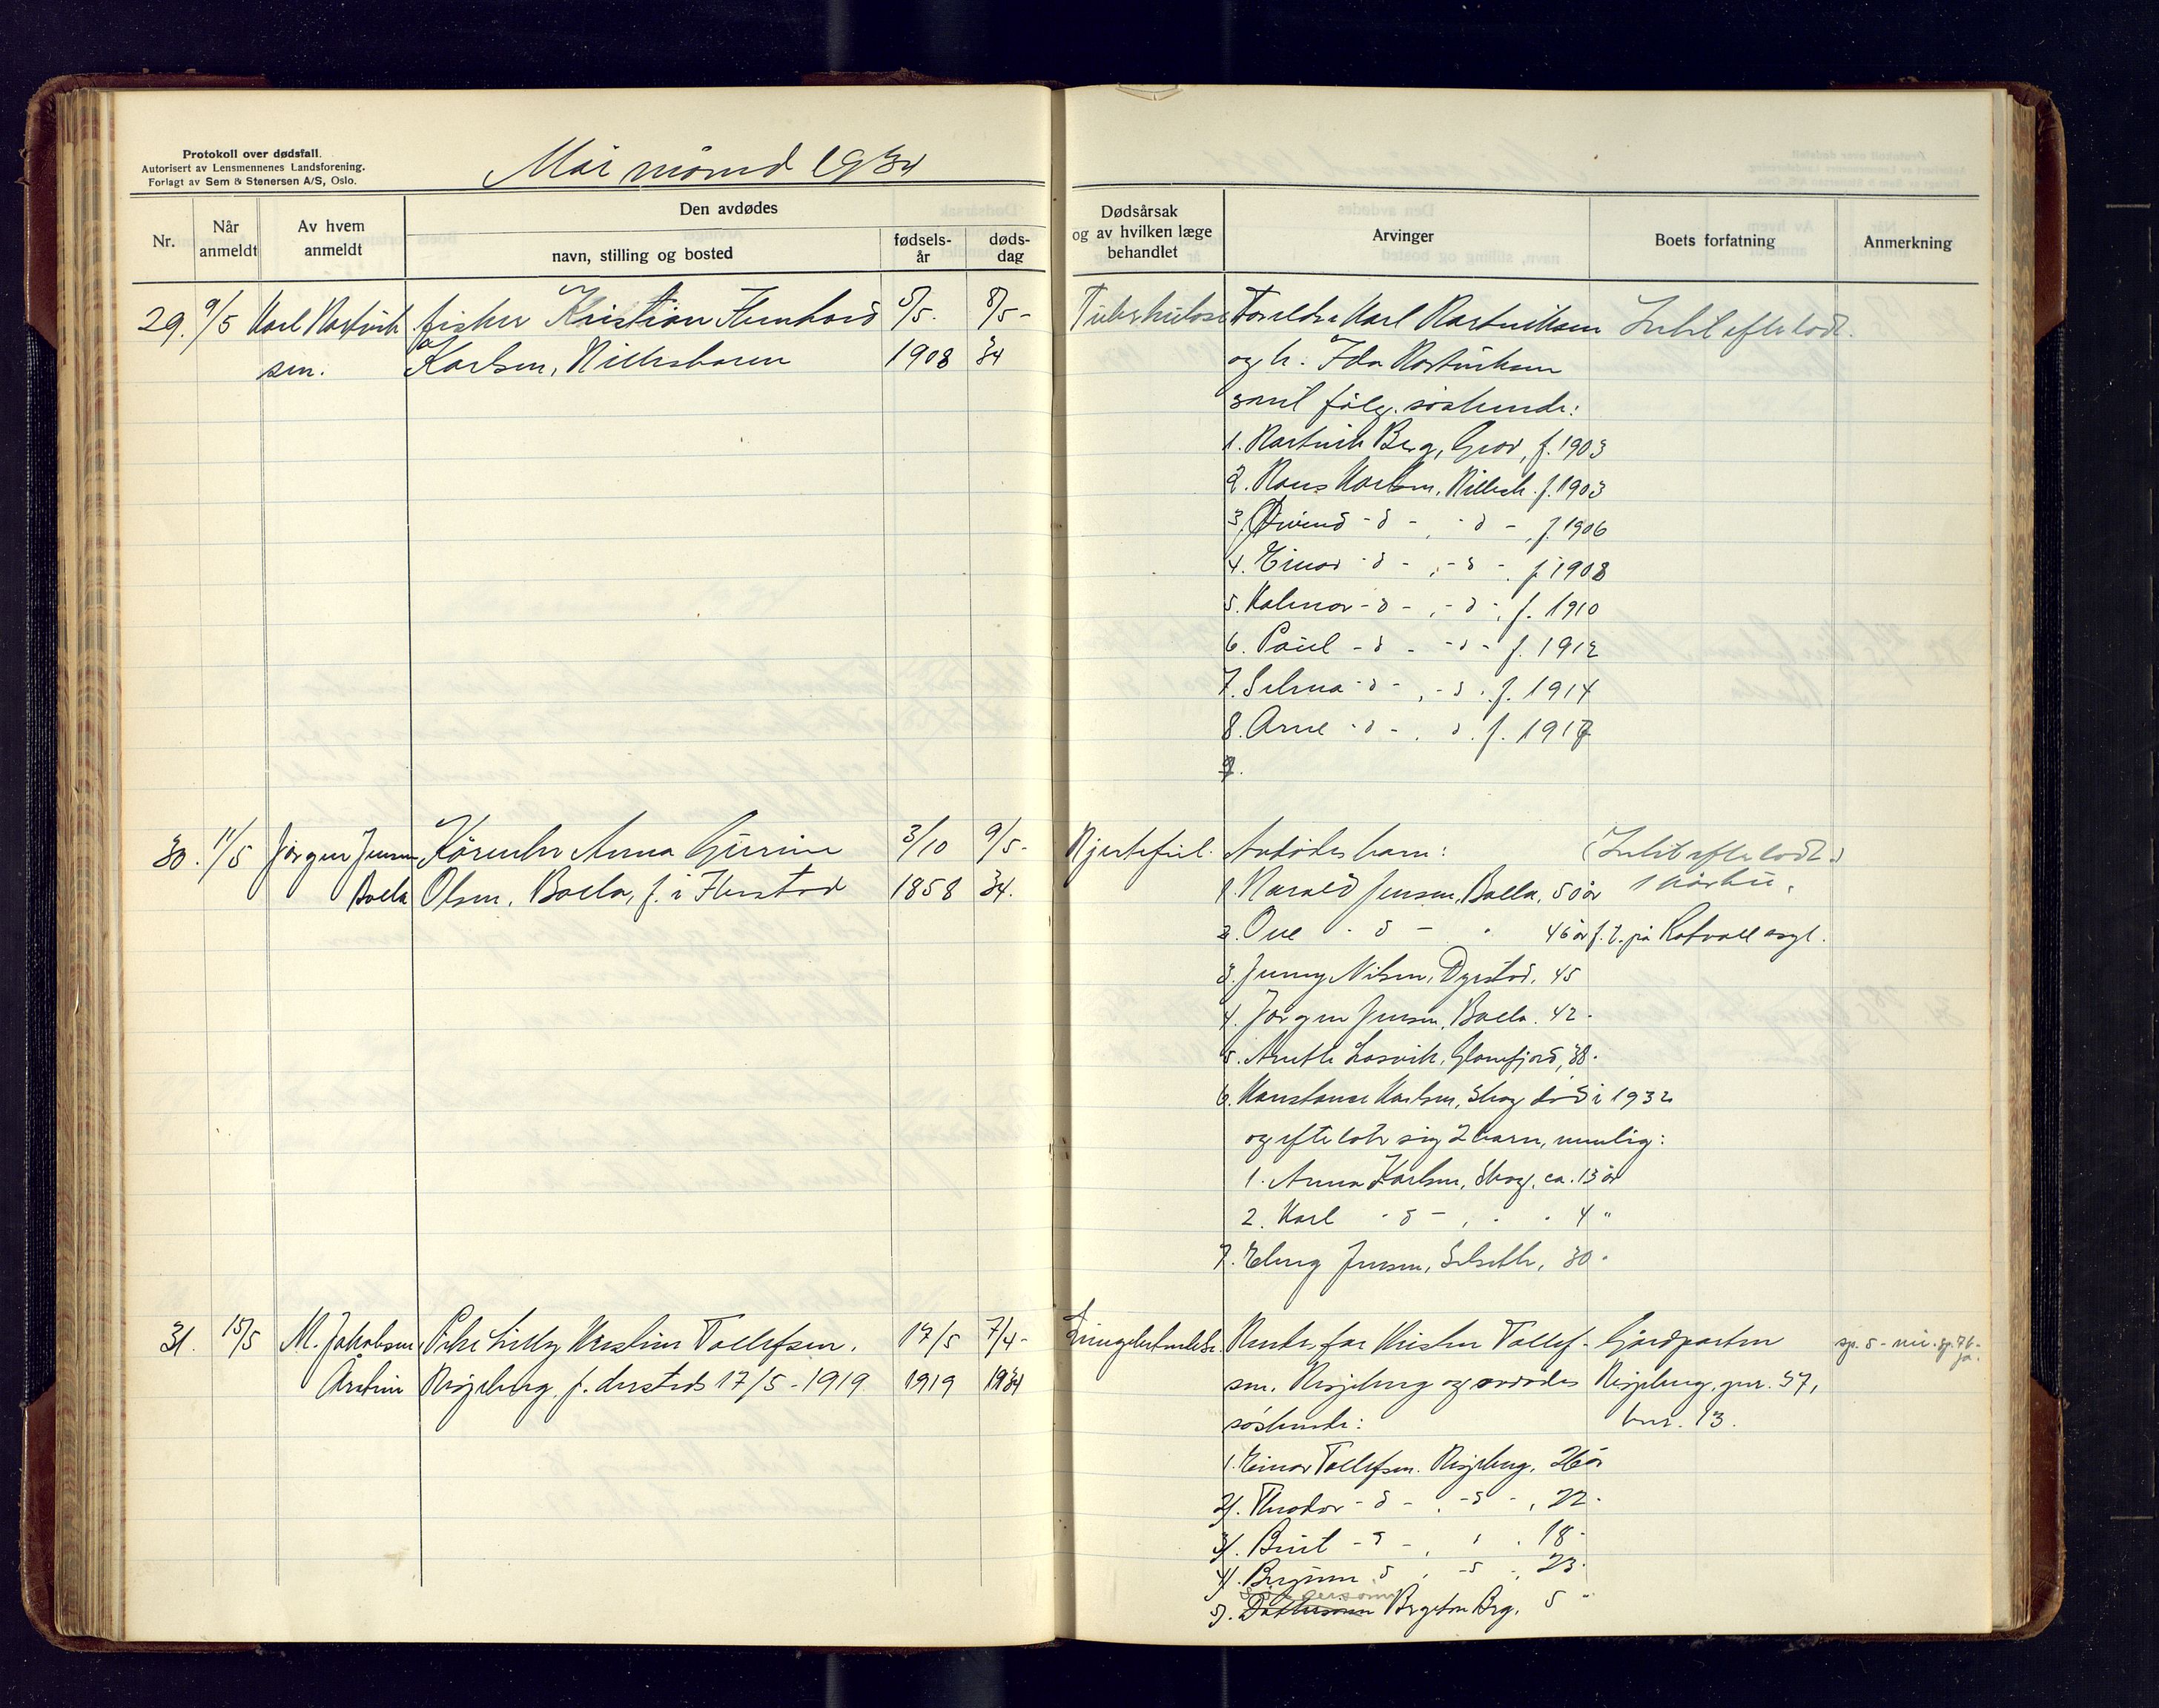 Protokoll over dødsfall.
Autorisert av Lensmennenes Landsforening.
Forlagt av Sem & Stenersen A/S, Oslo.
Mai måned 1934
Nr.
Når anmeldt
Av hvem anmeldt
Den avdødes
navn, stilling og bosted
fødsels-år
døds-dag
Dødsårsak og av hvilken læge behandlet
Arvinger
Boets forfatning
Anmerkning
29. 9/5 Karl Hartvik fisker Kristian 5/5. 8/5- Tuberkulose Foreldre Karl Hartviksen Intet efterlodt.
sen. Karlsen, 1908 34 og h. Ida Hartviksen
samt følg. søskende:
1. Hartvik Berg, Grov, f. 1903
2. Hans Karlsen, f. 1903
3. Øivind - d - , - d - , f. 1906
4. Einar - d - , - d - . f. 1908
5. Halmar - d - , - d - , f. 1910
6. Paul - d - - d - f. 1912
7. Selma - d - , - d . f. 1914
8. Arne - d - . d . f. 1917
9.
30. 11/5 Jørgen Jensen Kårenke Anna Gurine 3/10 9/5- Hjertefeil. Avdødes barn: (Intet efterlodt.)
Bolla Olsen, Bolla, f. i 1858 34. 1. Harald Jensen, Bolla, 50 år
2. Ove - d - " 46 år f. t. på Rotvoll asyl.
3. Jenny Nilsen, Dyrstad, 45
4. Jørgen Jensen, Bolla. 42 -
5. Anethe Lasvik, Glomfjord, 38 -
6. Konstanse Karlsen, Skog død i 1932
og efterlot sig 2 barn, nemlig:
1. Anna Karlsen, Skog, ca. 13 år
2. Karl - d - , . . 4 "
7. Jensen, Selseth, 30 -
31. 15/5 M. Jakobsen, Pike Lilly Kristine Tollefsen. 17/5 7/4- Lungebetendelse. far Kristen Tollef- Gårdparten sp. 5 - nei. sp. 7b - ja.
Årstein f. dersteds 17/5 - 1919 1919 1934 sen, og avdødes gnr. 57,
søskende: bnr. 13.
1. Einar Tollefsen. 26 år
2. Theodor - d - . - d - , 22 -
3. Berit - d - , , . 18 -
4. d , - d - , 23 -
5. Berg, 5 "